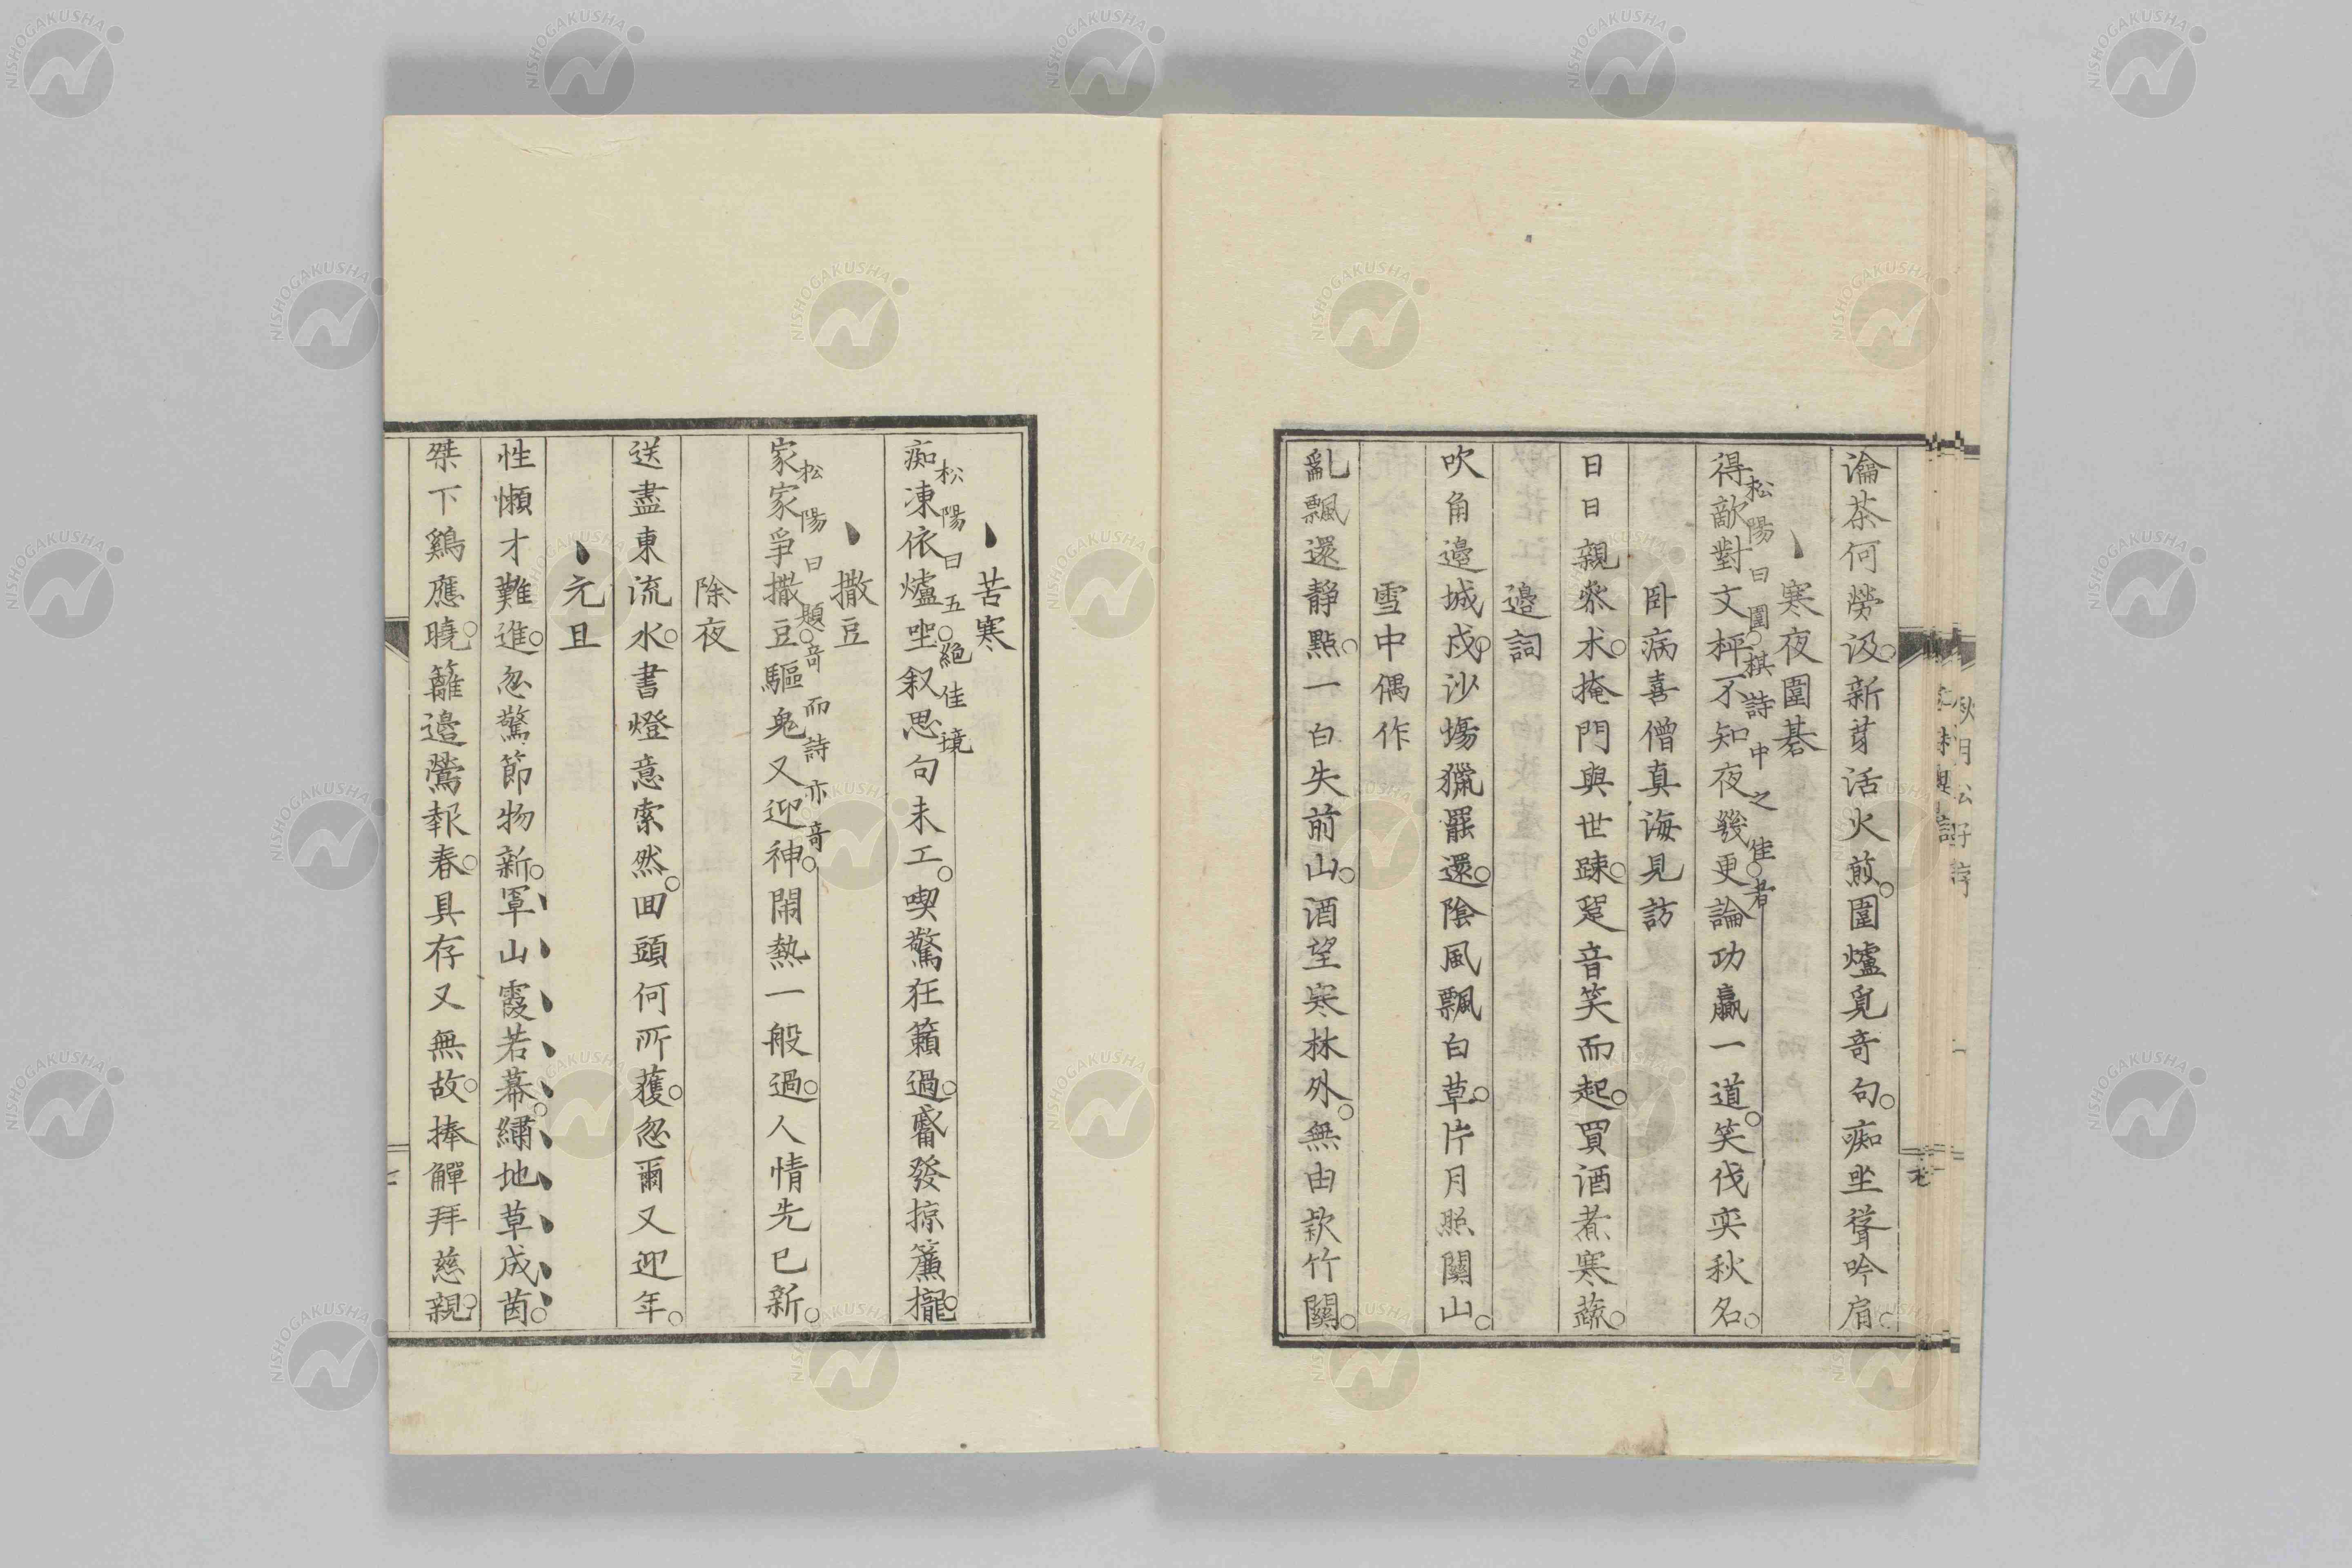 瀹茶何勞汲新芽活火煎圍爐覓奇句痴坐聳吟肩
寒夜圍碁
松陽曰圍棋詩中之佳者
得敵對文枰不知夜幾更論功贏一道笑伐奕秋名
臥病喜僧真海見訪
日日親參朮掩門與世踈跫音笑而起買酒煮寒蔬
邉詞
吹角邉城戍沙塲獵罷還陰風飄白草片月照關山
雪中偶作
亂飄還静點一白失前山酒望寒林外無由欵竹關
苦寒
松陽曰五絕佳境
痴凍依爐坐叙思句未工喫驚狂籟過觱發掠簾櫳
撒豆
松陽曰題奇而詩亦奇
家家爭撒豆驅鬼又迎神閙熱一般過人情先已新
除夜
送盡東流水書燈意索然囬頭何所獲忽爾又迎年
元旦
性懶才難進忽驚節物新罩山霞若幕繡地草成茵
桀下鷄應曉籬邉鶯報春具存又無故捧觶拜慈親
NISHOGAKUSHA